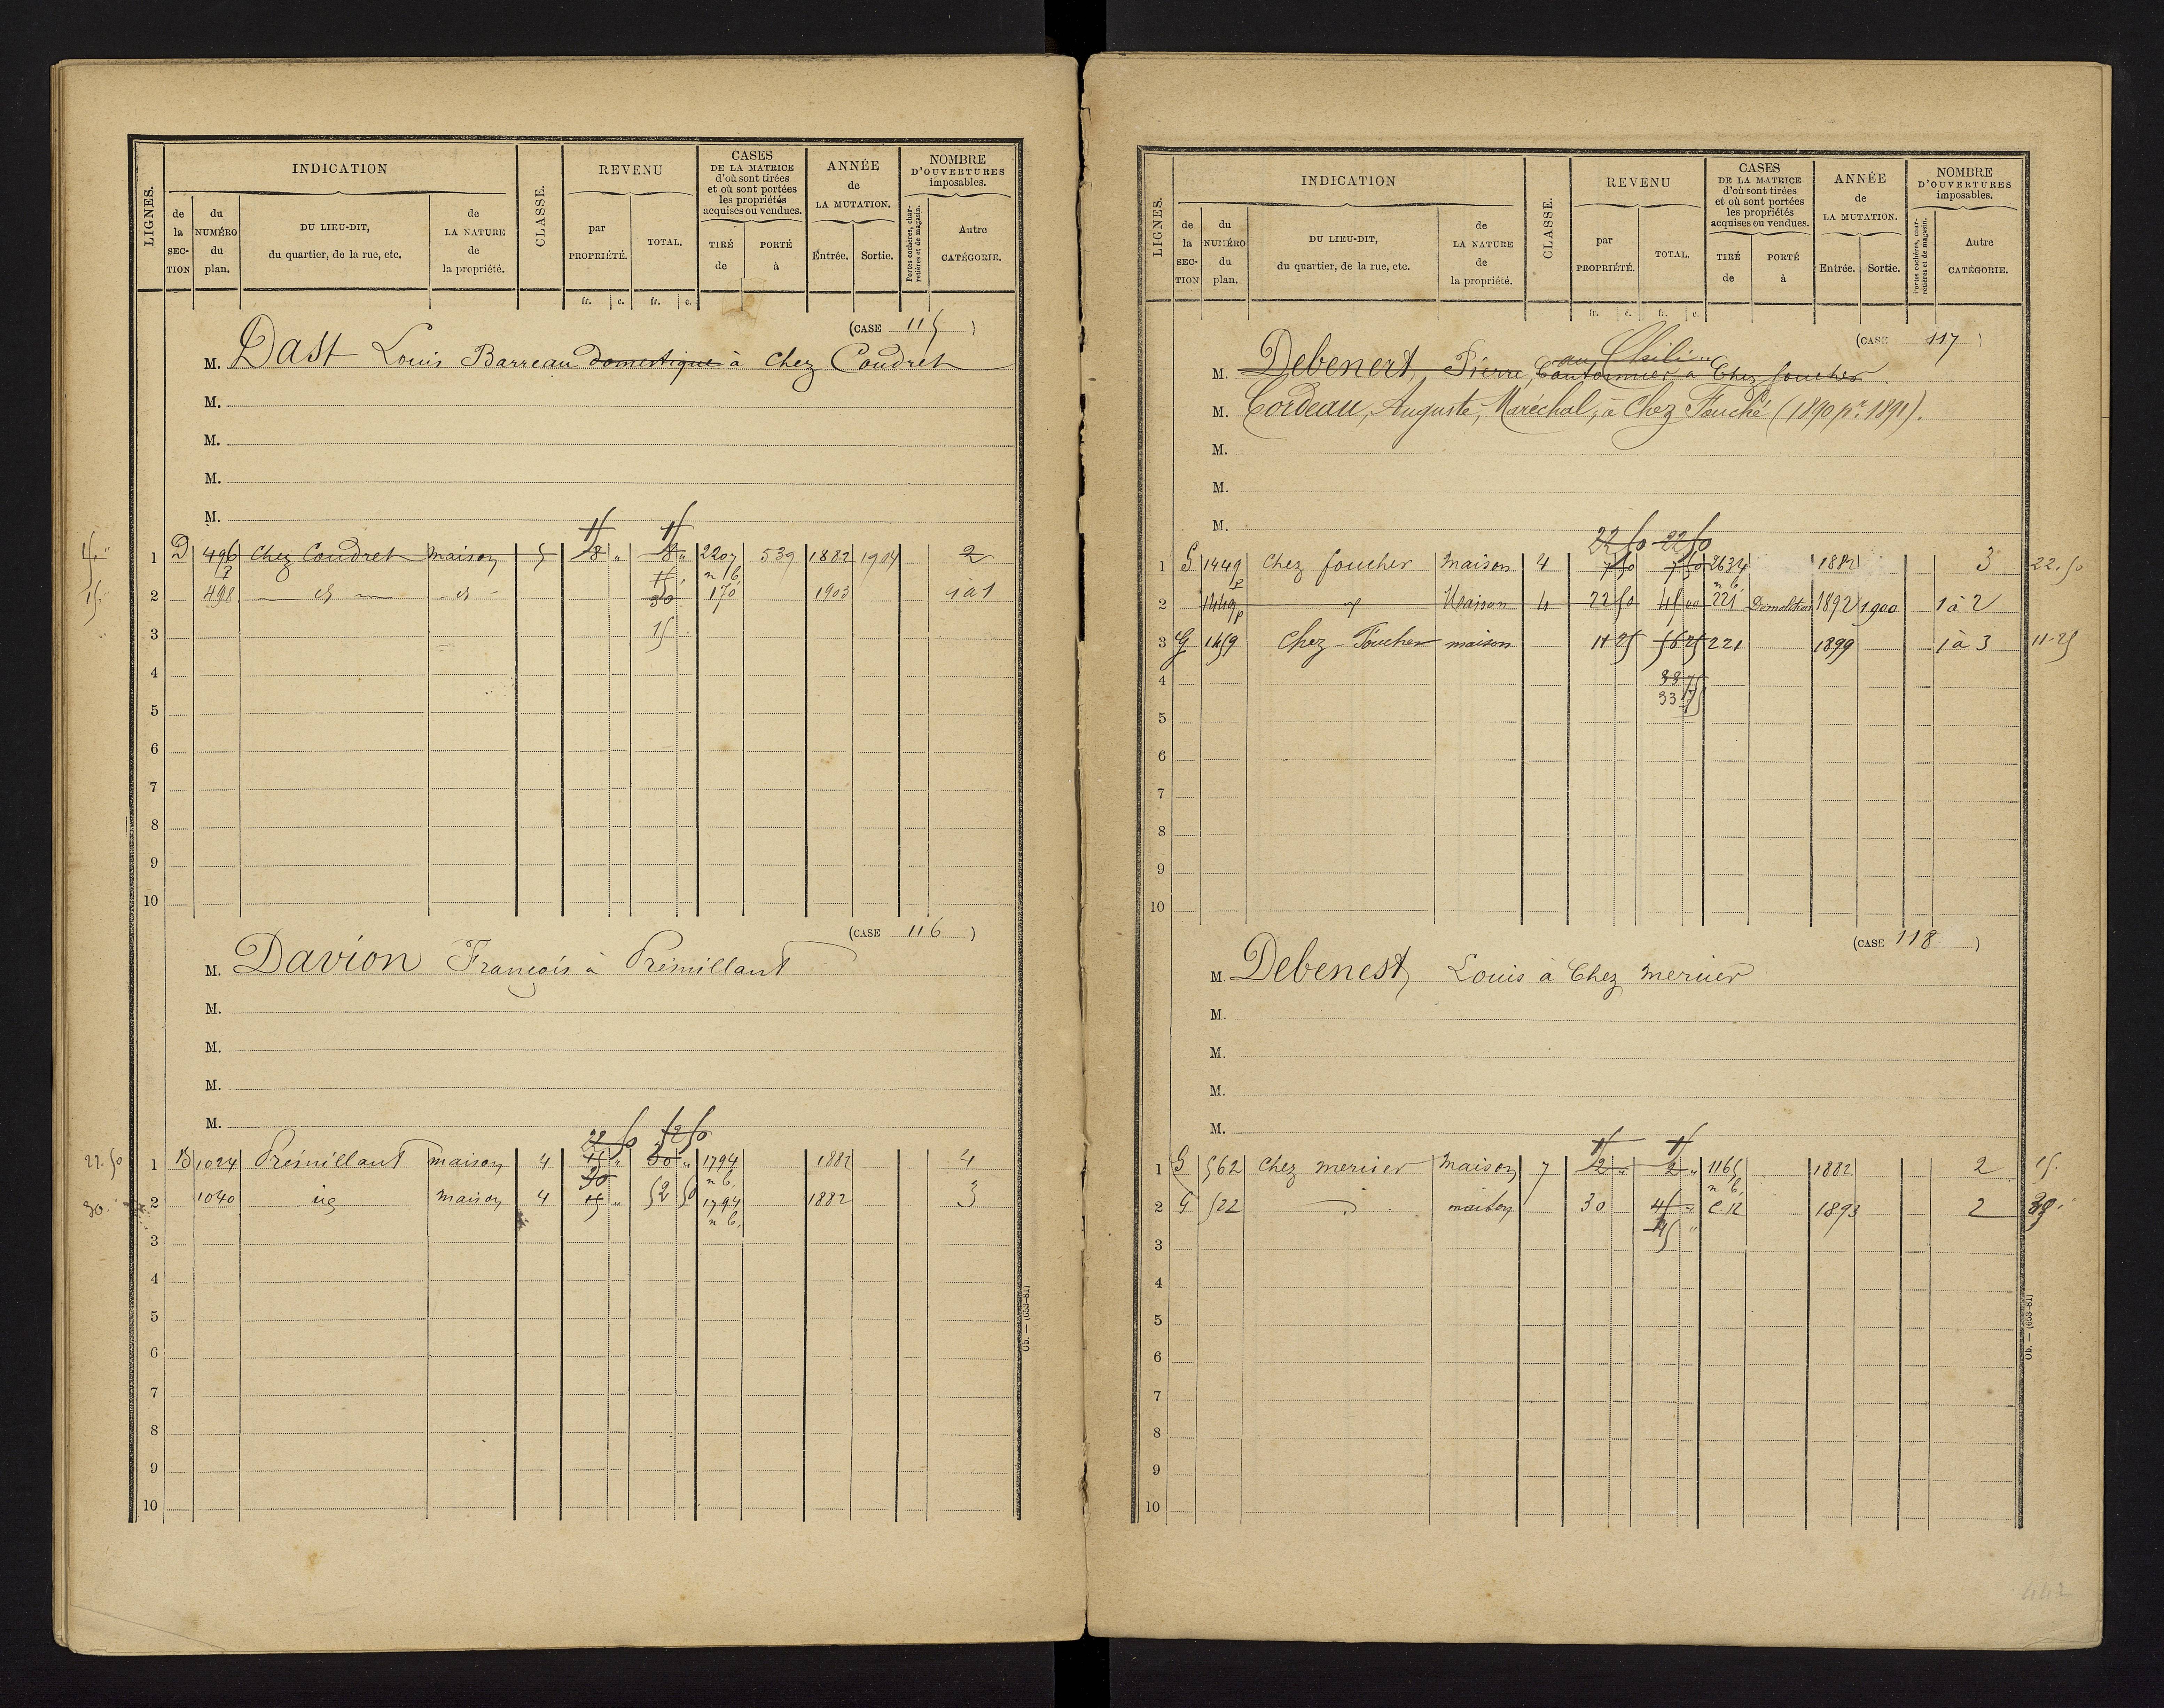 LIGNES. INDICATION CLASSE. REVENU CASES DE LA MATRICE d'où sont tirées et où sont portées les propriétés acquises ou vendues. ANNÉE de LA MUTATION. NOMBRE D'OUVERTURES imposables.
de la SECTION du NUMÉRO du plan. DU LIEU-DIT, du quartier, de la rue, etc. de LA NATURE de la propriété. par PROPRIÉTÉ. TOTAL. TIRÉ de PORTÉ à Entrée. Sortie. Portes cochères, charretières et de magasin. Autre CATÉGORIE.
fr. c. fr. c.
(CASE 115)
M. Dast Louis Barreau domestique à Chez Coudret
M.
M.
M.
M.
15 15
15 " 1 D 496 Chez Coudret maison 5 8 " 8 " 2207 539 1882 1904 2
n b.
15 " 2 498 d° d° 15 30 170 1903 1 à 1
3 15
4
5
6
7
8
9
10
(CASE 116)
M. Davion François à Prémillant
M.
M.
M.
M.
22 50 52 50
22.50 1 B 1024 Prémillant maison 4 15 " 30 " 1794 1882 4
30 n b.
30. " 2 1040 id maison 4 15 " 52 50 1794 1882 3
n b.
3
4
5
6
7
8
9
10
Ob. — (653-81)
LIGNES. INDICATION CLASSE. REVENU CASES DE LA MATRICE d'où sont tirées et où sont portées les propriétés acquises ou vendues. ANNÉE de LA MUTATION. NOMBRE D'OUVERTURES imposables.
de la SECTION du NUMÉRO du plan. DU LIEU-DIT, du quartier, de la rue, etc. de LA NATURE de la propriété. par PROPRIÉTÉ. TOTAL. TIRÉ de PORTÉ à Entrée. Sortie. Portes cochères, charretières et de magasin. Autre CATÉGORIE.
fr. c. fr. c.
(CASE 117)
M. Debenert, Pierre, Cantonnier à Chez foucher
M. Cordeau, Auguste, Maréchal, à Chez Fouché (1890 pr. 1891).
M.
M.
M.
22 50 22 50
1 G 1449p Chez foucher Maison 4 7 50 7 50 2634 1882 3 22.50
n b.
2 1449p d° Maison 4 22 50 45 00 221 Démolition 1892 1900 1 à 2
3 G 1459 Chez-Foucher maison 11 25 56 25 221 1899 1 à 3 11-25
4 33 75
33 75
5
6
7
8
9
10
(CASE 118)
M. Debenest, Louis à Chez mercier
M.
M.
M.
M.
15 15
1 G 562 Chez mercier Maison 7 2 " 2 " 1165 1882 2 15.
n b.
2 G 522 d° maison 30 45 " C.12 1893 2
45 "
3
4
5
6
7
8
9
10
Ob. — (653-81)
442